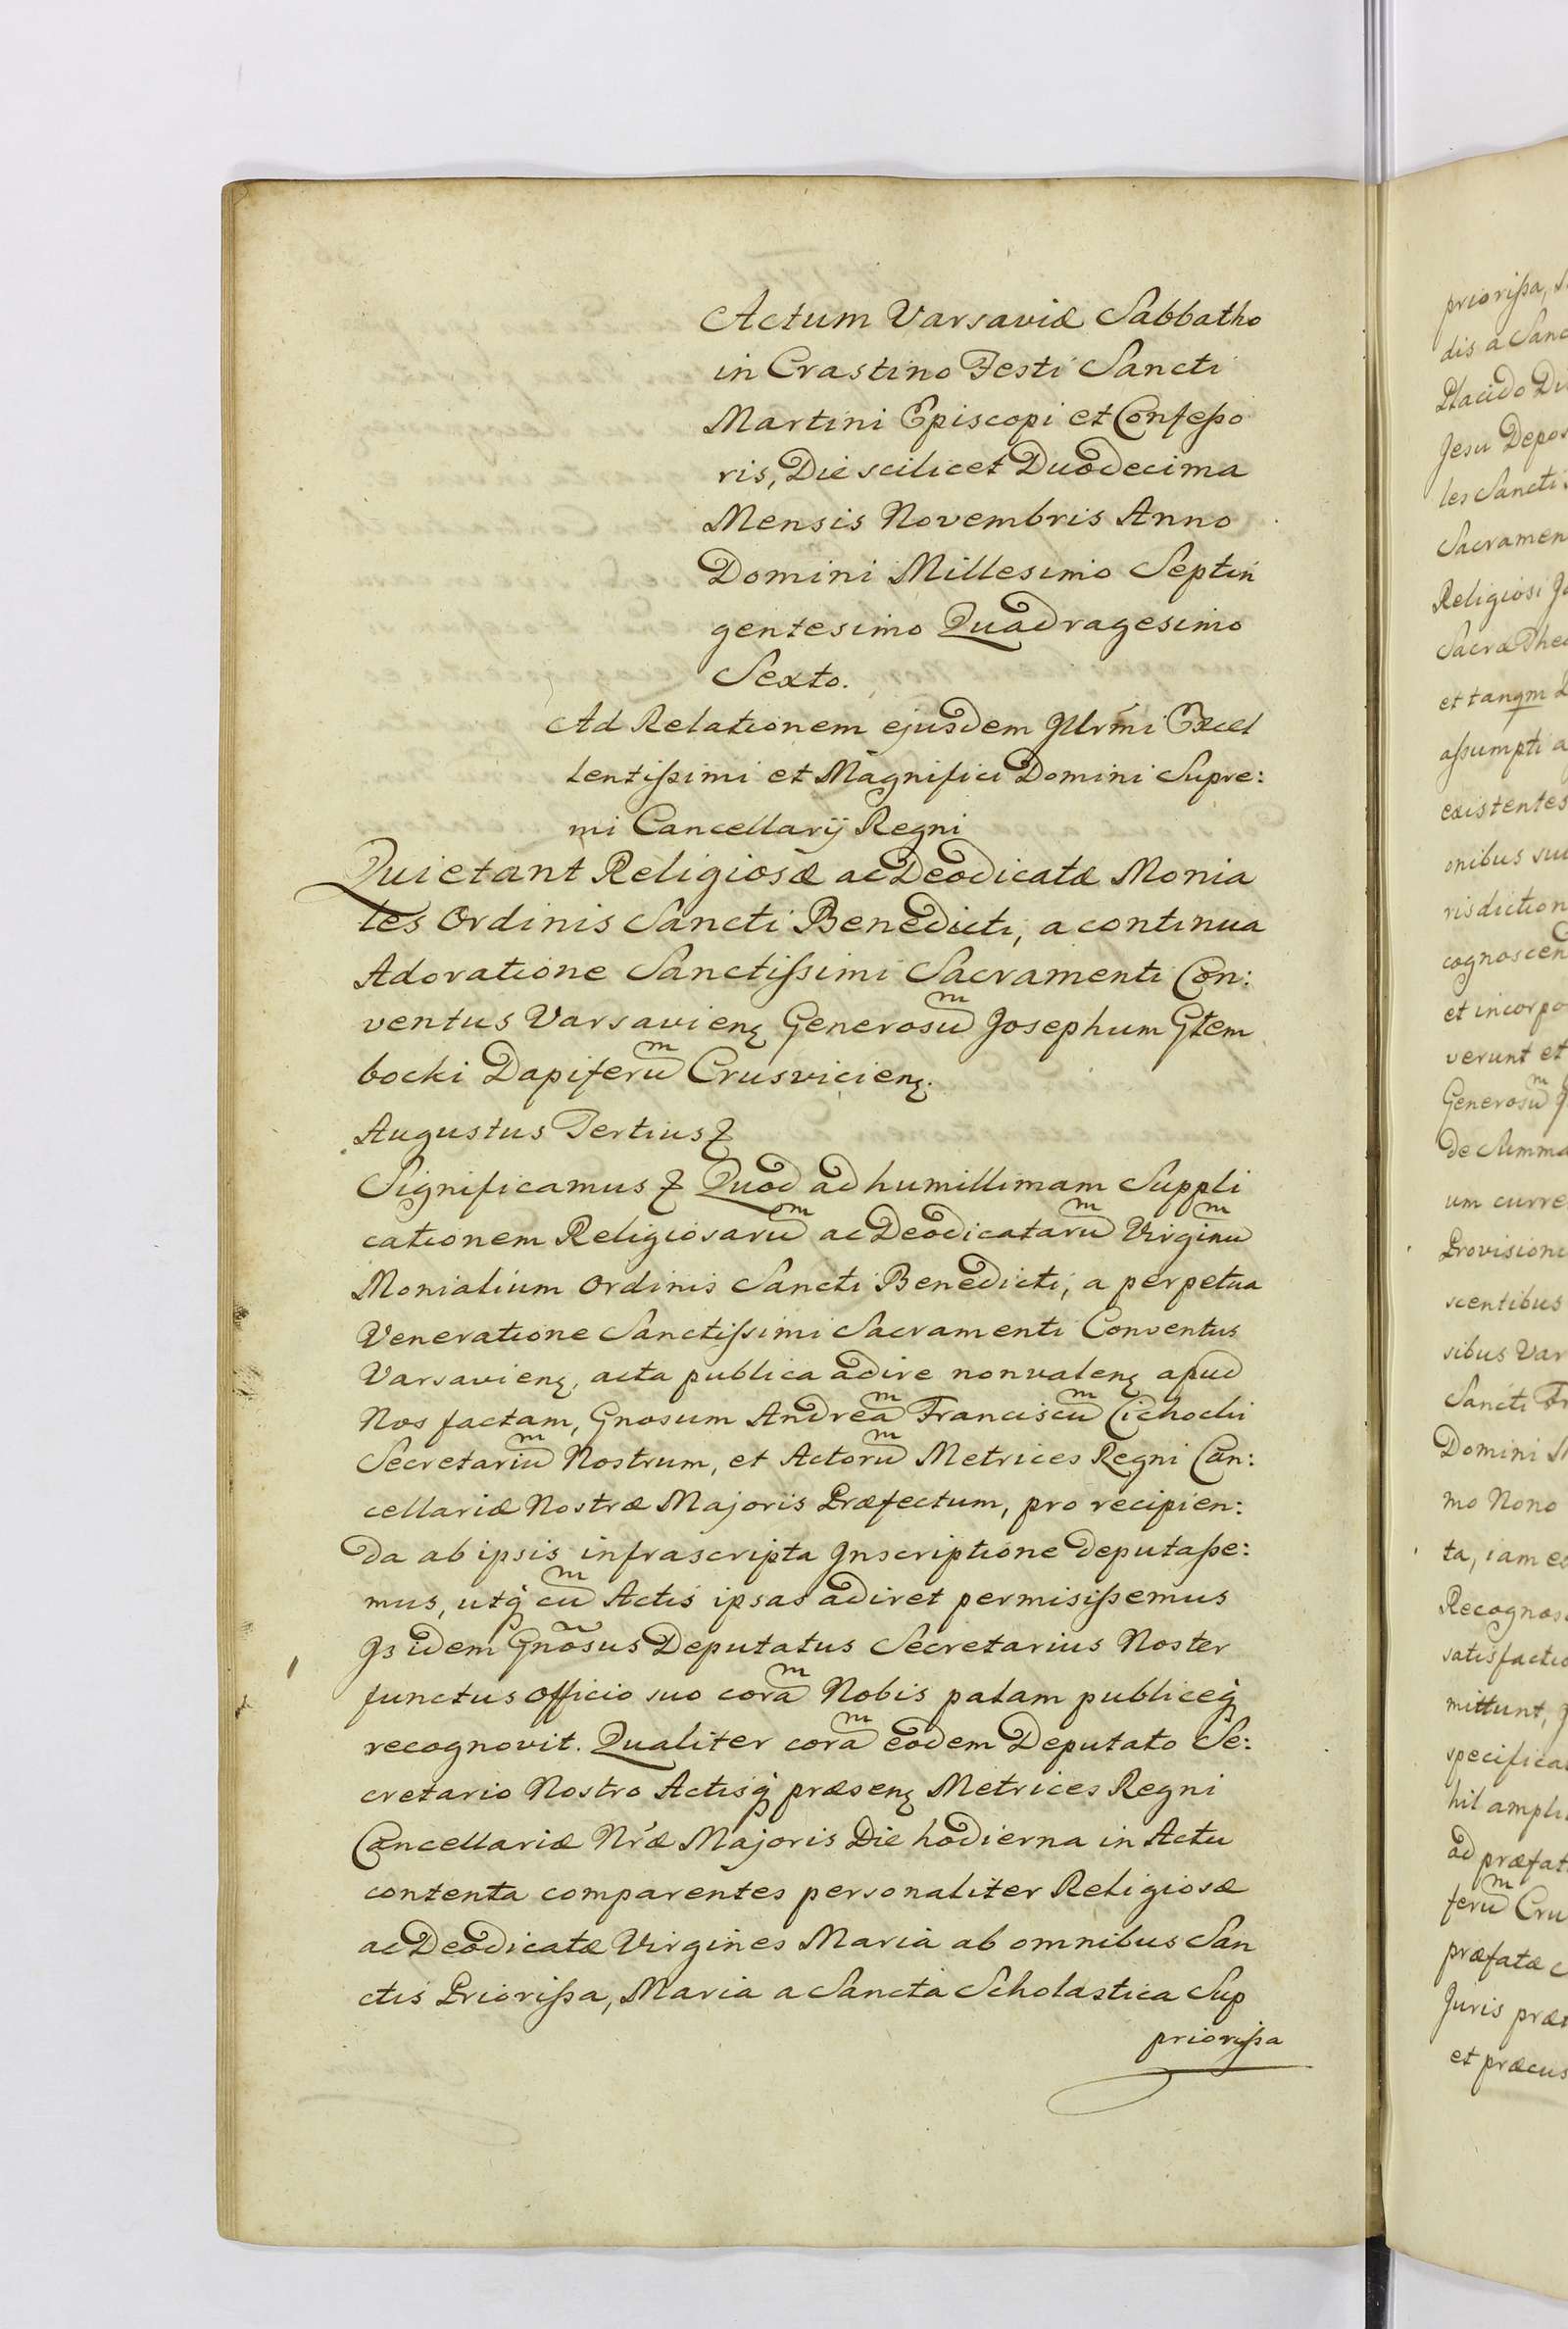 Actum Varsaviæ Sabbatho
in Crastino Festi Sancti
Martini Episcopi et Confesso
ris, Die scilicet Duodecima
Mensis Novembris Anno
Domini Millesimo Septin
gentesimo Quadragesimo
Sexto.
Ad Relationem ejusdem Jllrmi Excel
lentissimi et Magnifici Domini Supre:
mi Cancellarij Regni
Quietant Religiosæ ac Deodicatæ Monia
les Ordinis Sancti Benedicti, a continua
Adoratione Sanctissimi Sacramenti Con:
ventus Varsavienꝫ Generosuͫ Josephum Głem
bocki Dapiferuͫ Crusvicienꝫ.
Augustus Tertiusꝫ
Significamusꝫ Quod ad humillimam Suppli
cationem Religiosaruͫ ac Deodicataruͫ Virginuͫ
Monialium Ordinis Sancti Benedicti, a perpetua
Veneratione Sanctissimi Sacramenti Conventus
Varsavienꝫ, acta publica adire non valenꝫ apud
Nos factam, Gnosum Andreaͫ Franciscuͫ Cichocki
Secretariuͫ Nostrum, et Actoruͫ Metrices Regni Can:
cellariæ Nostræ Majoris Præfectum, pro recipien:
da ab ipsis infrascripta Jnscriptione deputasse:
mus, utq̃ cuͫ Actis ipsas adiret permisissemus
Js idem Gnõsus Deputatus Secretarius Noster
functus officio suo coraͫ Nobis palam publiceq̃
recognovit. Qualiter coraͫ eodem Deputato Se:
cretario Nostro Actisq̃ præsenꝫ Metrices Regni
Cancellariæ Nr̃æ Majoris Die hodierna in Actu
contenta comparentes personaliter Religiosæ
ac Deodicatæ Virgines Maria ab omnibus San
ctis Priorissa, Maria a Sancta Scholastica Sup
priorissa
priorissa,
dis a Sanc
Placido
Jesu Depos
les Sancti
Sacramen
Religiosi
Sacræ
et tanqm
assumpti a
existentes
onibus
risdiction
cognoscen
et incorpo
verunt et
Generosuͫ
de Summa
um curre
Provisione
scentibus
sibus Var
Sancti Fr
Domini
mo Nono
ta, iam
Recognos
satisfactio
mittunt,
specifica
hil ampli
ad præfat
feruͫ Cru
præfatæ
Juris præ
et præcus